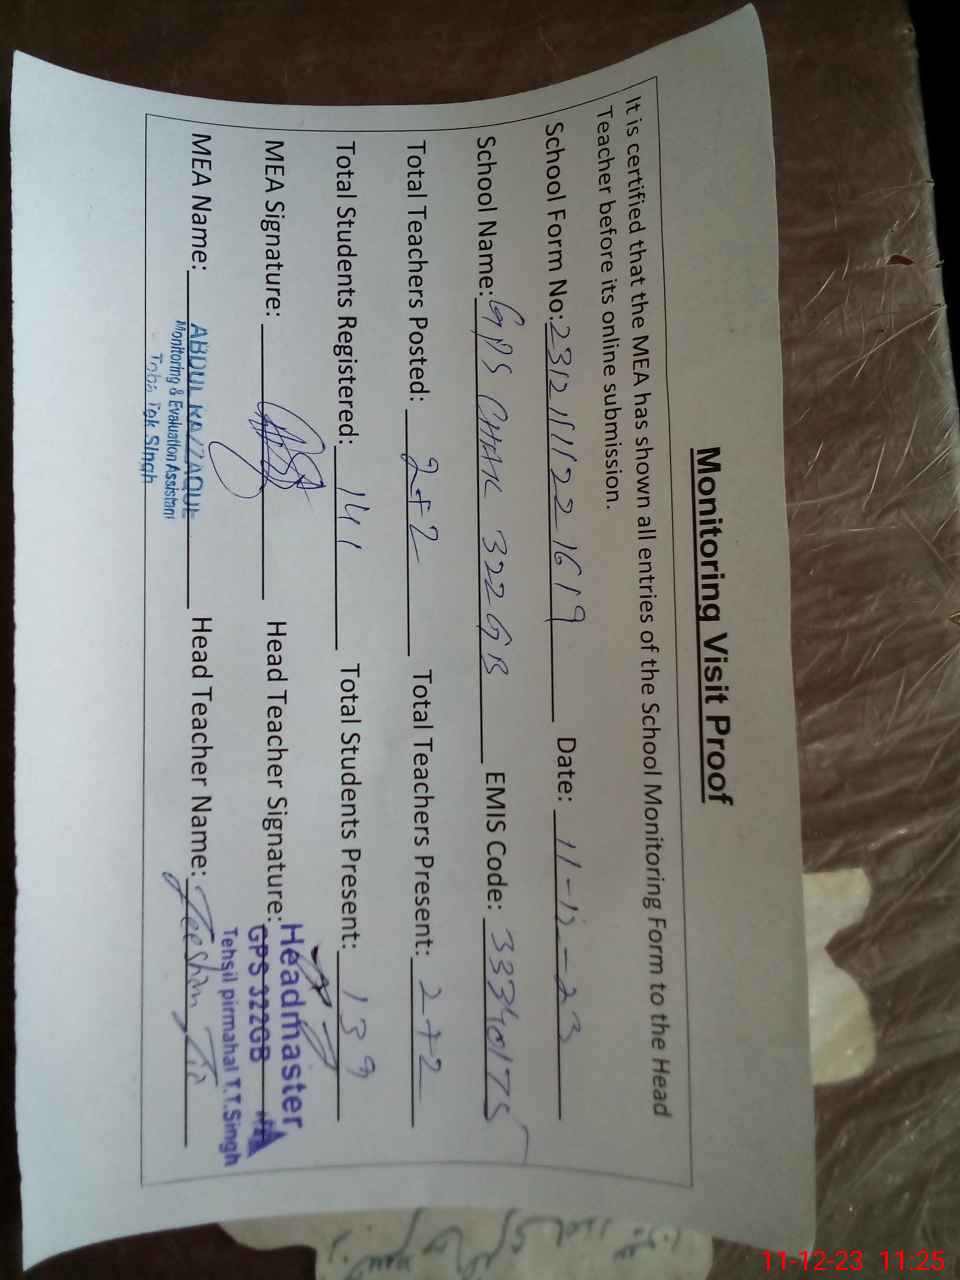 Monitoring Visit Proof
It is certified that the MEA has shown all entries of the School Monitoring Form to the Head
Teacher before its online submission.
School Form No: Date: 11-12-23
School Name: GPS CHAK 322 GB EMIS Code: 33340175
Total Teachers Posted: 2+2 Total Teachers Present: 2+2
Total Students Registered: 141 Total Students Present: 139
MEA Signature: Head Teacher Signature:
Headmaster
GPS 322GB
Tehsil pirmahal T.T.Singh
MEA Name: ABDUL RAZZAQUE Head Teacher Name: Zeeshan
Monitoring & Evaluation Assistant
Toba Tek Singh
11-12-23 11:25